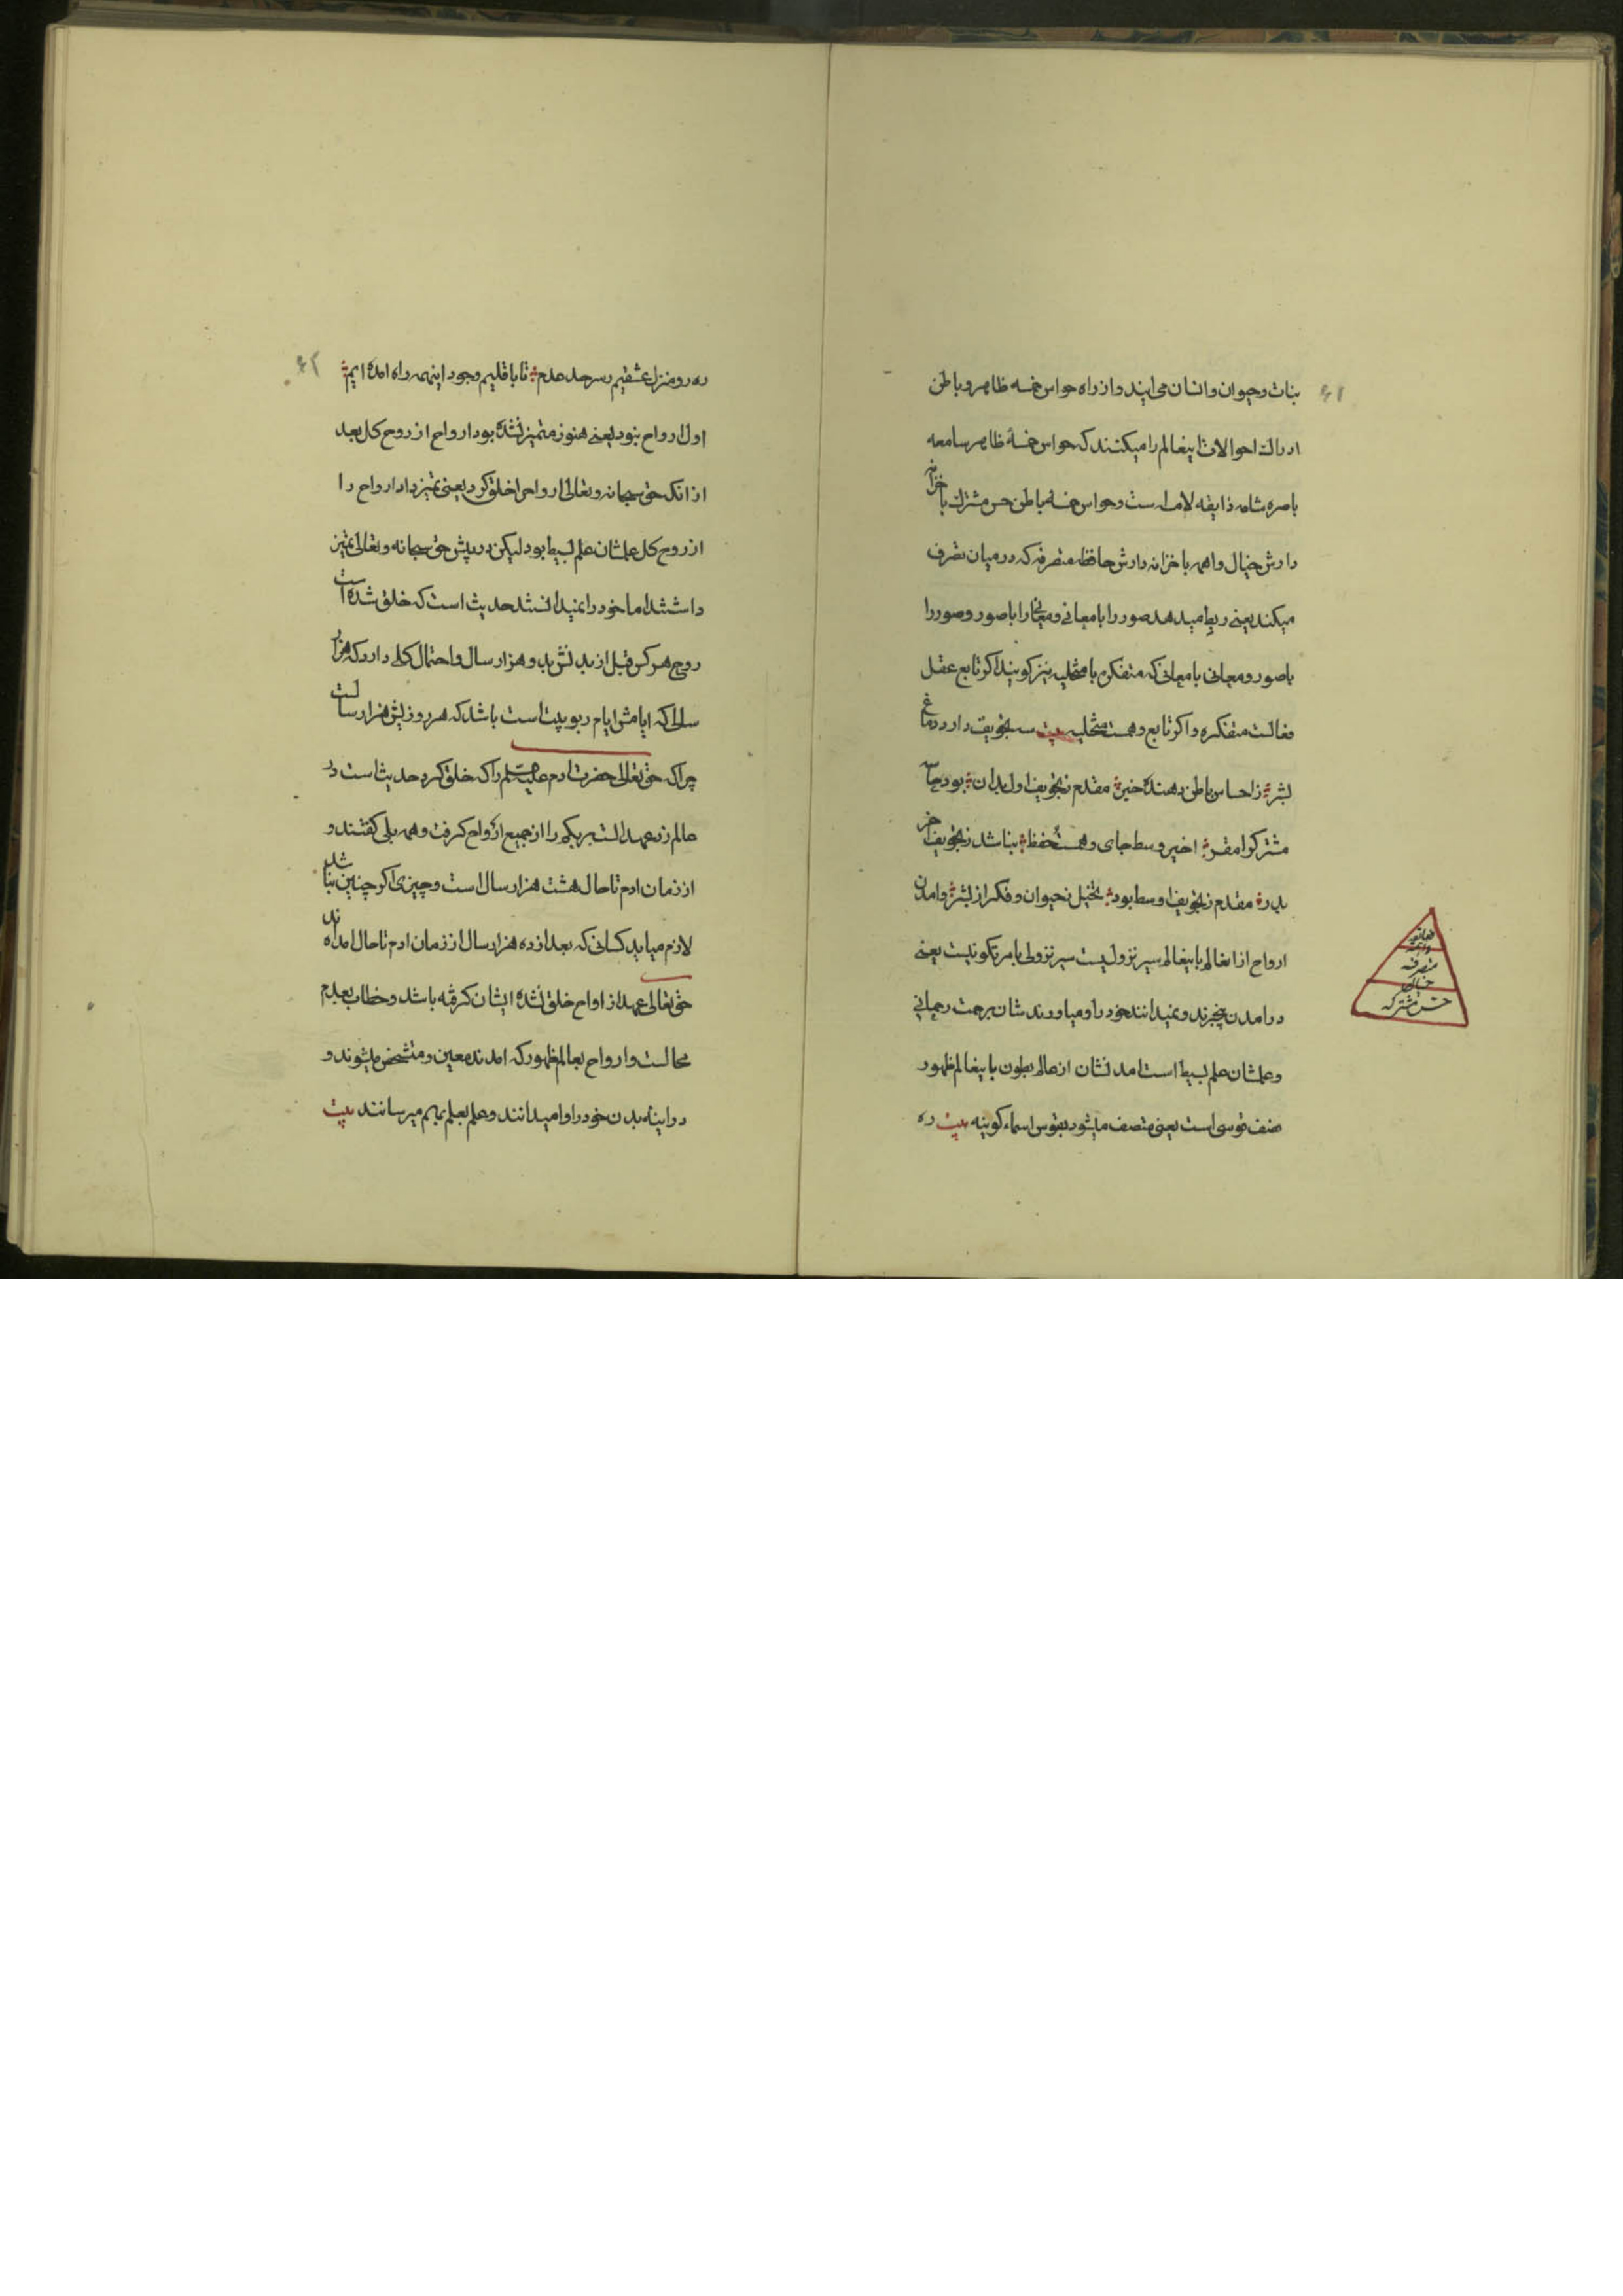 ۶۱
بنات وحیوان وانسان می ایند واز راه حواس خمسه ظاهر وباطن
ادراك احوالات اینعالم را میکنند که حواس خمسهٔ ظاهر سامعه
باصره شامه ذایقه لامسه است وحواس خمسه باطن حس مشترك با خزانه
دارش خیال واهمه با خزانه دارش حافظه متصرفه که در میان تصرف
میکند یعنی ربط میدهد صور را با معانی ومعانی را با صور وصور را
با صور ومعانی با معانی که متفکره با متخلیه نیز کویند اکر تابع عقل
فعالست متفکره واکر تابع وهمست متخلیه بیت سه تجویف دارد دماغ
بشر ز احساس باطن دهندهٔ خبر مقدم تجویف اول بدان بود جای
مشترکرا مقر اخیر وسط جای وهمست حفظ نباشد ز تجویف اخر
بدر مقدم ز تجویف اوسط بود تخیل ز حیوان وفکر از بشر وامدن
ارواح از انعالم باینعالم سیر نزولیست سیر نزولی بامر تکونیست یعنی
در امدن بیخبرند ونمیدانند خود را ومیاوروند شان برحمت رحمانی
وعلمشان علم بسیط است امد نشان از عالم بطون باینعالم ظهور
صنف قوسی است یعنی متصف میشود بقوس اسماء کونیه بیت ره
حافظه
واهمه
متصرفه
خیال
حس مشترکه
۶۲
ره رو منزل عشقیم ز سر حد عدم تا باقلیم وجود اینهمه راه امده ایم
اول ارواح نبود یعنی هنوز متمیز نشده بود ارواح از روح کل بعد
از انکه حق سبحانه وتعالی ارواح را خلق کرد یعنی تمیز داد ارواح را
از روح کل علمشان علم بسیط بود لیکن در پیش حق سبحانه وتعالی تمیز
داشتند اما خود را نمیدانستند حدیث است که خلق شده است
روح هر کس قبل از بدنش بدو هزار سال واحتمال کلی دارد که هزار
سالی که ایامش ایام ربوبیت است باشد که هر روزیش هزار سالست
چرا که حق تعالی حضرت ادم علیه السلم را که خلق کرد حدیث است در
عالم ذر عهد الست بربکم را از جمیع ارواح کرفت وهمه بلی کفتند و
از زمان ادم تا حال هشت هزار سال است وچیزی اکر چنین نباشد
لازم میاید کسانی که بعد از ده هزار سال از زمان ادم تا حال امده اند
حق تعالی عهد از اواح خلق نشده ایشان کرفته باشد وخطاب بعدم
محالست وارواح بعالم ظهور که امدند معین ومتشخص میشوند و
در اینه بدن خود را وا میدانند وعلم بعلم بهم میرسانند بیت